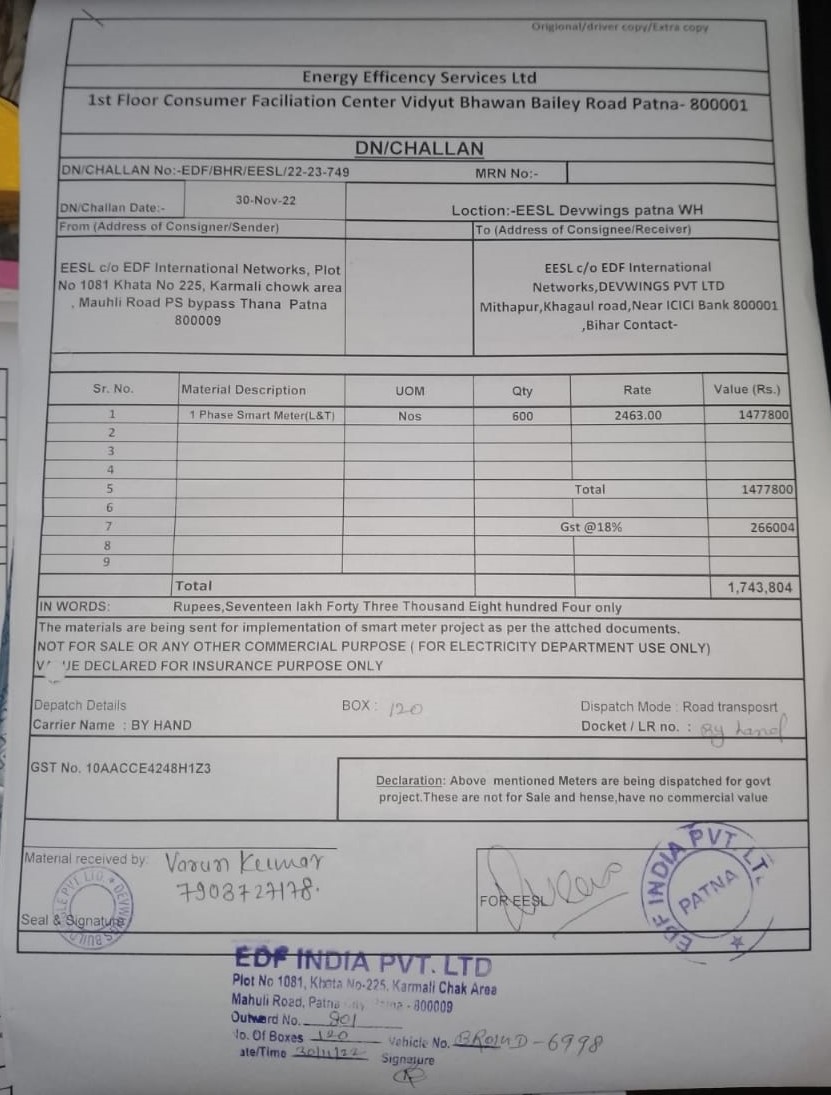 Origional/driver copy/Extra copy
Energy Efficency Services Ltd
1st Floor Consumer Faciliation Center Vidyut Bhawan Bailey Road Patna- 800001
DN/CHALLAN
DN/CHALLAN No:-EDF/BHR/EESL/22-23-749 MRN No:-
DN/Challan Date:- 30-Nov-22 Loction:-EESL Devwings patna WH
From (Address of Consigner/Sender) To (Address of Consignee/Receiver)
EESL c/o EDF International Networks, Plot
No 1081 Khata No 225, Karmali chowk area
, Mauhli Road PS bypass Thana Patna
800009
EESL c/o EDF International
Networks,DEVWINGS PVT LTD
Mithapur,Khagaul road,Near ICICI Bank 800001
,Bihar Contact-
Sr. No. Material Description UOM Qty Rate Value (Rs.)
1 1 Phase Smart Meter(L&T) Nos 600 2463.00 1477800
2
3
4
5 Total 1477800
6
7 Gst @18% 266004
8
9
Total 1,743,804
IN WORDS: Rupees,Seventeen lakh Forty Three Thousand Eight hundred Four only
The materials are being sent for implementation of smart meter project as per the attched documents.
NOT FOR SALE OR ANY OTHER COMMERCIAL PURPOSE ( FOR ELECTRICITY DEPARTMENT USE ONLY)
DECLARED FOR INSURANCE PURPOSE ONLY
Depatch Details BOX : 120 Dispatch Mode : Road transposrt
Carrier Name : BY HAND Docket / LR no. : By hand
GST No. 10AACCE4248H1Z3
Declaration: Above mentioned Meters are being dispatched for govt
project.These are not for Sale and hense,have no commercial value
Material received by: Varun Kumar
7903727178.
Seal & Signature
FOR EESL
EDF INDIA PVT. LT.
PATNA
EDF INDIA PVT. LTD
Plot No 1081, Khata No-225, Karmali Chak Area
Mahuli Road, Patna - 800009
Outward No. 801
No. Of Boxes 120 Vehicle No. BR01HD-6998
ate/Time 30/11/22 Signature